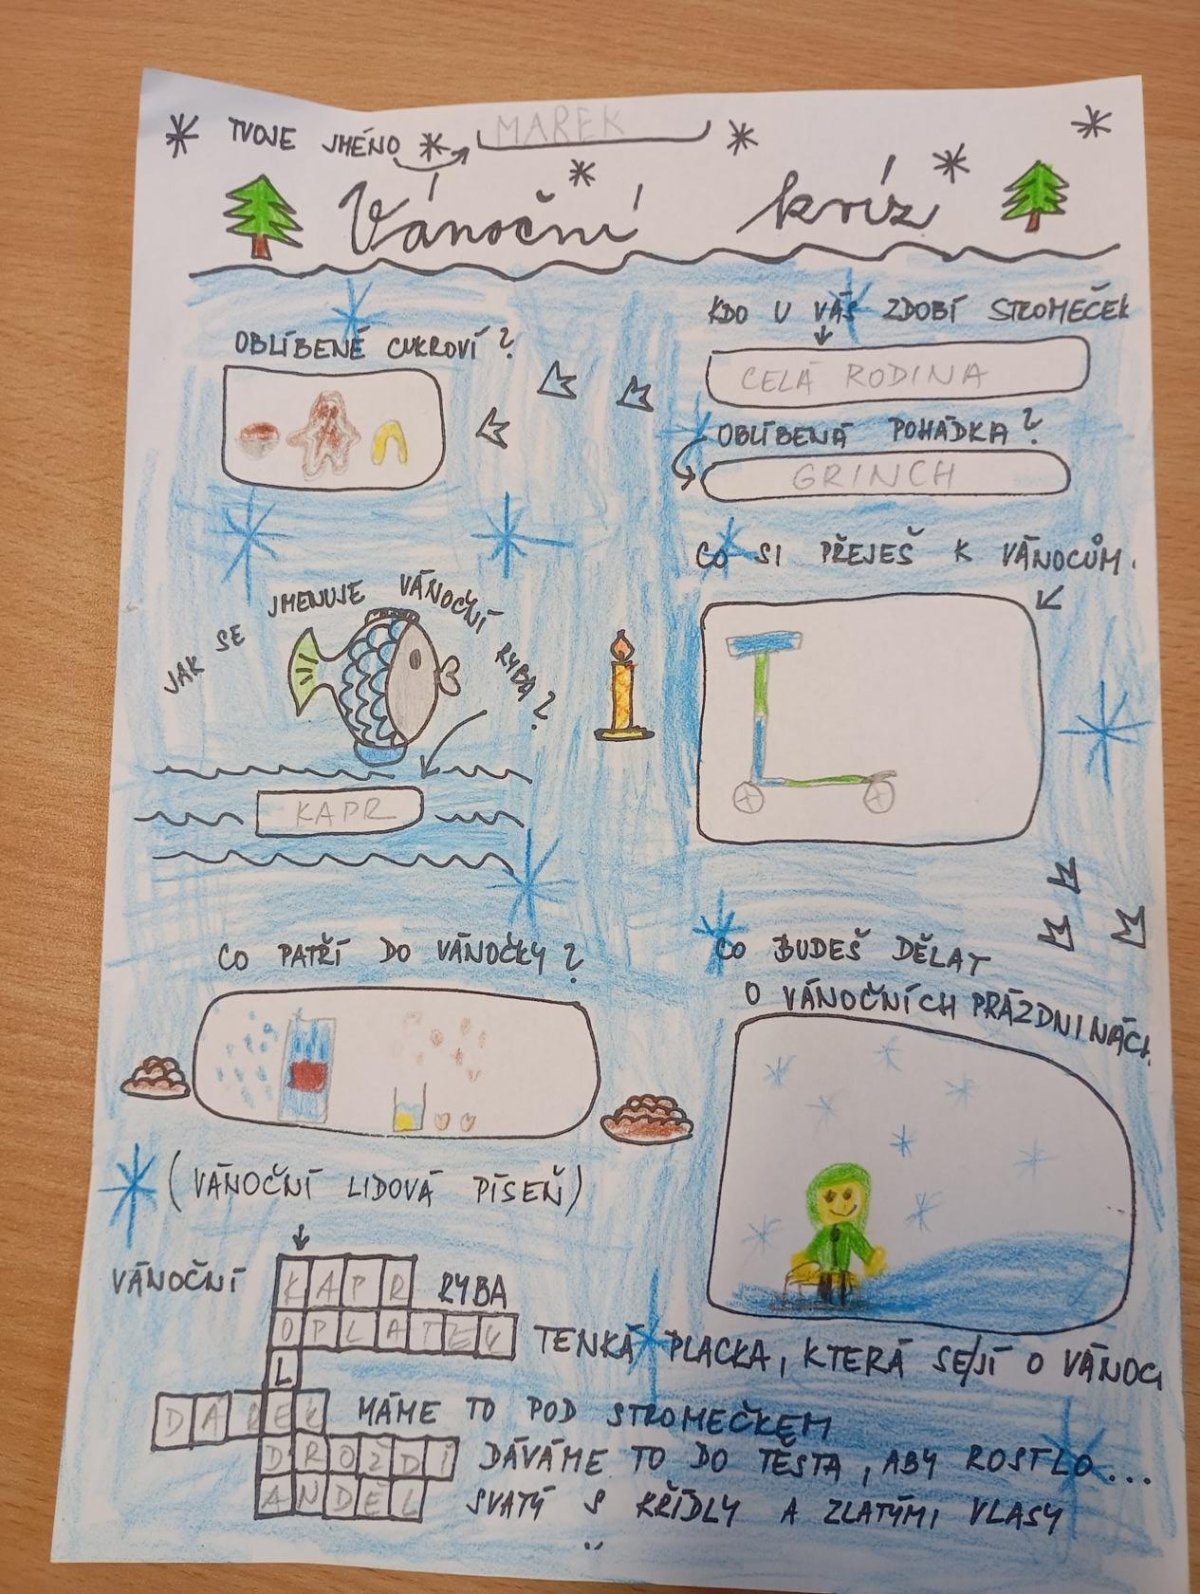 TVOJE JMÉNO MAREK
Vánoční kvíz
OBLÍBENÉ CUKROVÍ?
KDO U VÁS ZDOBÍ STROMEČEK
CELÁ RODINA
OBLÍBENÁ POHÁDKA?
GRINCH
CO SI PŘEJEŠ K VÁNOCŮM.
JAK SE JMENUJE VÁNOČNÍ RYBA?
KAPR
CO PATŘÍ DO VÁNOČKY?
CO BUDEŠ DĚLAT
O VÁNOČNÍCH PRÁZDNINÁCH
(VÁNOČNÍ LIDOVÁ PÍSEŇ)
VÁNOČNÍ KAPR RYBA
OPLATEK TENKÁ PLACKA, KTERÁ SE JÍ O VÁNOCÍ
L
DÁREK MÁME TO POD STROMEČKEM
DROŽDÍ DÁVÁME TO DO TĚSTA, ABY ROSTLO...
ANDĚL SVATÝ S KŘÍDLY A ZLATÝMI VLASY